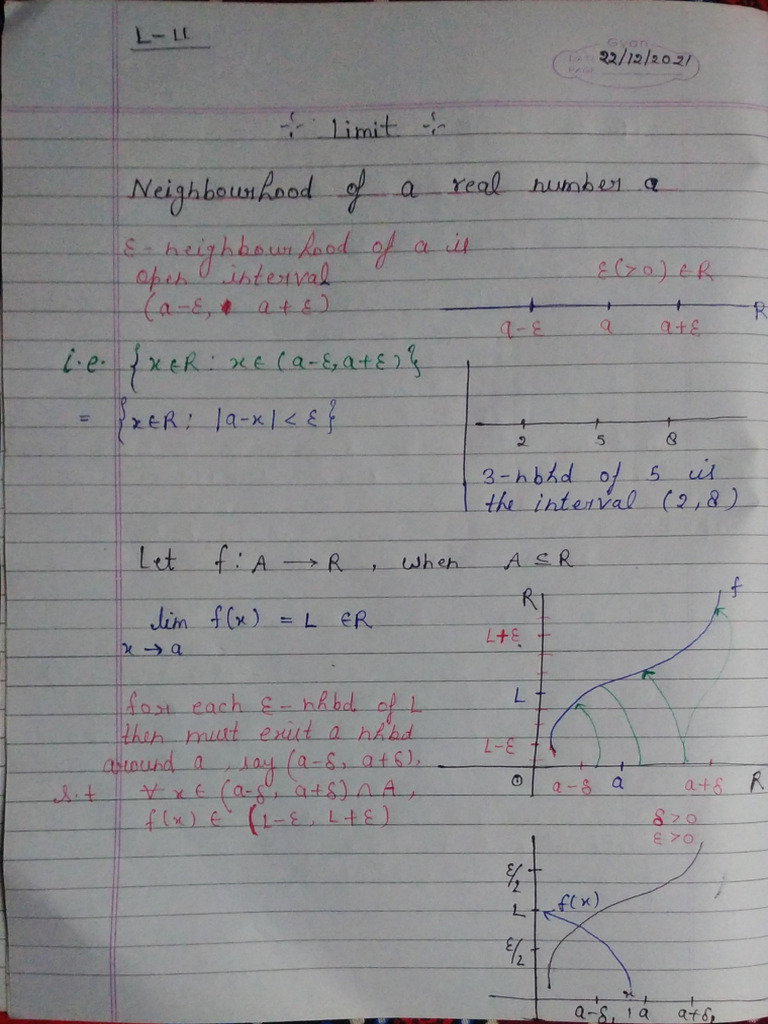 L-11
Gyan
DATE 22/12/2021
PAGE
Limit
Neighbourhood of a real number a
ε-neighbourhood of a is
open interval
(a-ε, a+ε)
ε(>0) ∈ R
R
a-ε a a+ε
i.e. {x∈R : x∈(a-ε, a+ε)}
= {x∈R : |a-x| < ε}
2 5 8
3-nbhd of 5 is
the interval (2,8)
Let f : A → R , when A ⊆ R
lim f(x) = L ∈R
x→a
R
f
L+ε
L
L-ε
0 a-δ a a+δ R
for each ε-nhbd of L
then must exist a nhbd
around a, say (a-δ, a+δ),
s.t ∀ x ∈ (a-δ, a+δ) ∩ A,
f(x) ∈ (L-ε, L+ε)
δ>0
ε>0
ε/2
L
f(x)
ε/2
x
a-δ₁ a a+δ₁